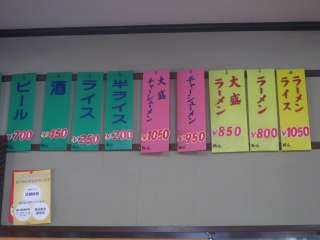 ビール
¥700
酒
¥450
ライス
¥250
半ライス
¥200
大盛
チャーシューメン
¥1050
税込
チャーシューメン
¥950
税込
大盛
ラーメン
¥850
税込
ラーメン
¥800
税込
ラーメン
ライス
¥1050
税込